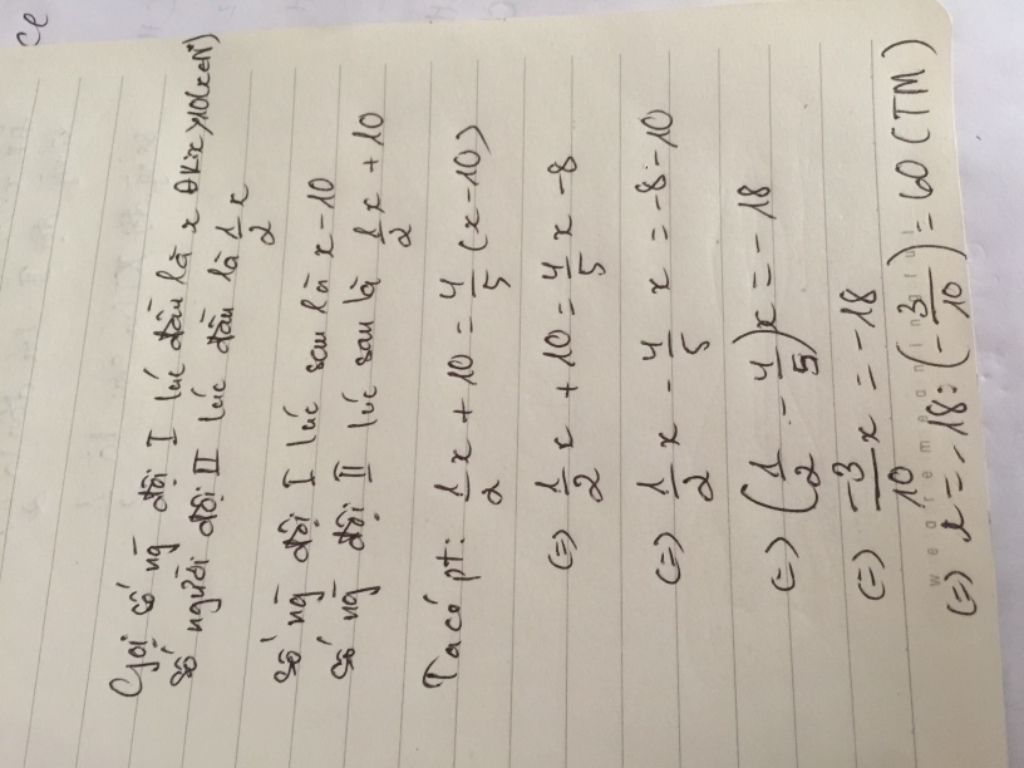 ce
Gọi số ng̃ đội I lúc đầu là x ĐK: x > 10 (x ∈ N*)
Số người đội II lúc đầu là 1/2 x
Số ng̃ đội I lúc sau là x - 10
Số ng̃ đội II lúc sau là 1/2 x + 10
Ta có pt: 1/2 x + 10 = 4/5 (x - 10)
(=) 1/2 x + 10 = 4/5 x - 8
(=) 1/2 x - 4/5 x = -8 - 10
(=) (1/2 - 4/5) x = -18
(=) -3/10 x = -18
(=) x = -18 : (-3/10) = 60 (TM)